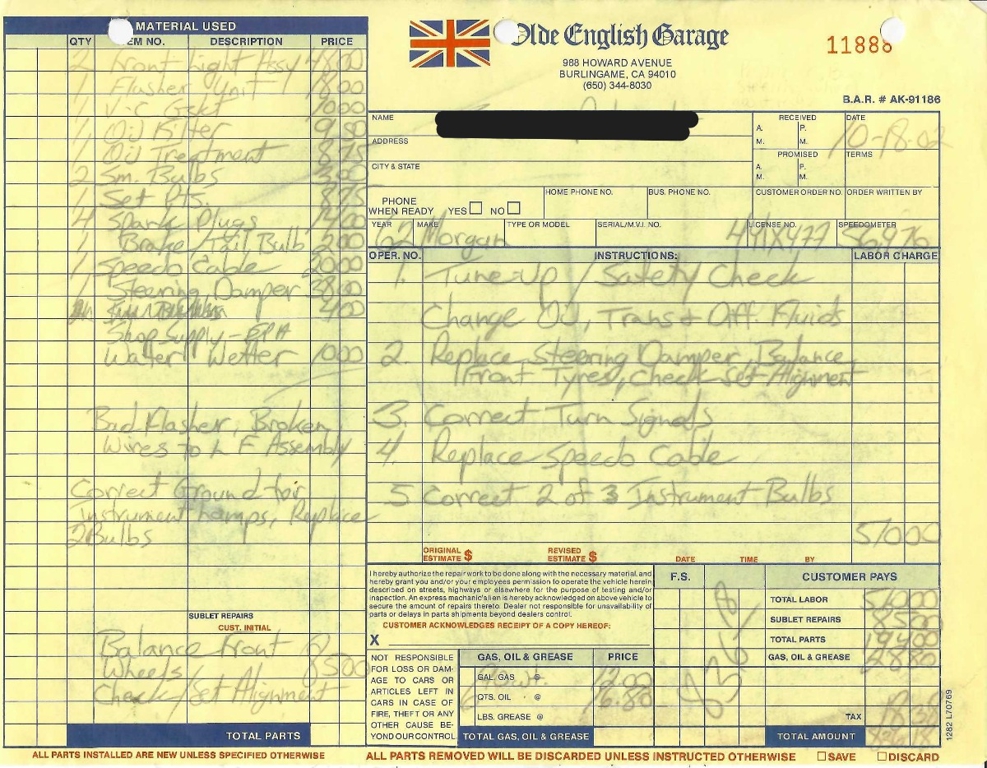 MATERIAL USED
QTY EM NO. DESCRIPTION PRICE
2 Front Light Assy 4800
1 Flasher Unit 1800
1 V-C Gskt 1000
1 Oil Filter 9.50
1 Oil Treatment 8.75
2 Sm. Bulbs
1 Set Pts. 875
4 Spark Plugs 1400
1 Brake/Tail Bulb 200
1 Speedo Cable 2000
1 Steering Damper 3800
400
Shop Supply - EPA
Water Wetter 1000
Bad Flasher, Broken
Wires to L F Assembly
Correct Ground for
Instrument Lamps, Replace
2 Bulbs
SUBLET REPAIRS
CUST. INITIAL
Balance Front
Wheels/ 8500
Check/Set Alignment
TOTAL PARTS
ALL PARTS INSTALLED ARE NEW UNLESS SPECIFIED OTHERWISE
Olde English Garage
988 HOWARD AVENUE
BURLINGAME, CA 94010
(650) 344-8030
11888
B.A.R. # AK-91186
NAME
ADDRESS
CITY & STATE
RECEIVED
A. P.
M. M.
DATE
10-18-02
PROMISED
A. P.
M. M.
TERMS
PHONE
WHEN READY YES NO
HOME PHONE NO. BUS. PHONE NO. CUSTOMER ORDER NO. ORDER WRITTEN BY
YEAR MAKE TYPE OR MODEL SERIAL/M.V.I. NO. LICENSE NO. SPEEDOMETER
62 Morgan 56976
OPER. NO. INSTRUCTIONS: LABOR CHARGE
1. Tune-Up / Safety Check
Change Oil, Trans + Diff. Fluids
2. Replace Steering Damper, Balance
Front Tyres, Check-Set Alignment
3. Correct Turn Signals
4. Replace Speedo Cable
5 Correct 2 of 3 Instrument Bulbs
51000
ORIGINAL ESTIMATE $ REVISED ESTIMATE $ DATE TIME BY
I hereby authorize the repair work to be done along with the necessary material, and
hereby grant you and/or your employees permission to operate the vehicle herein
described on streets, highways or elsewhere for the purpose of testing and/or
inspection. An express mechanic's lien is hereby acknowledged on above vehicle to
secure the amount of repairs thereto. Dealer not responsible for unavailability of
parts or delays in parts shipments beyond dealers control.
CUSTOMER ACKNOWLEDGES RECEIPT OF A COPY HEREOF:
X
F.S.
CUSTOMER PAYS
TOTAL LABOR 51000
SUBLET REPAIRS 8500
TOTAL PARTS 19400
GAS, OIL & GREASE 2880
TAX
TOTAL AMOUNT
NOT RESPONSIBLE
FOR LOSS OR DAM-
AGE TO CARS OR
ARTICLES LEFT IN
CARS IN CASE OF
FIRE, THEFT OR ANY
OTHER CAUSE BE-
YOND OUR CONTROL.
GAS, OIL & GREASE PRICE
GAL. GAS @ 12.00
QTS. OIL @ 16.80
LBS. GREASE @
TOTAL GAS, OIL & GREASE
ALL PARTS REMOVED WILL BE DISCARDED UNLESS INSTRUCTED OTHERWISE SAVE DISCARD
1282 L70769